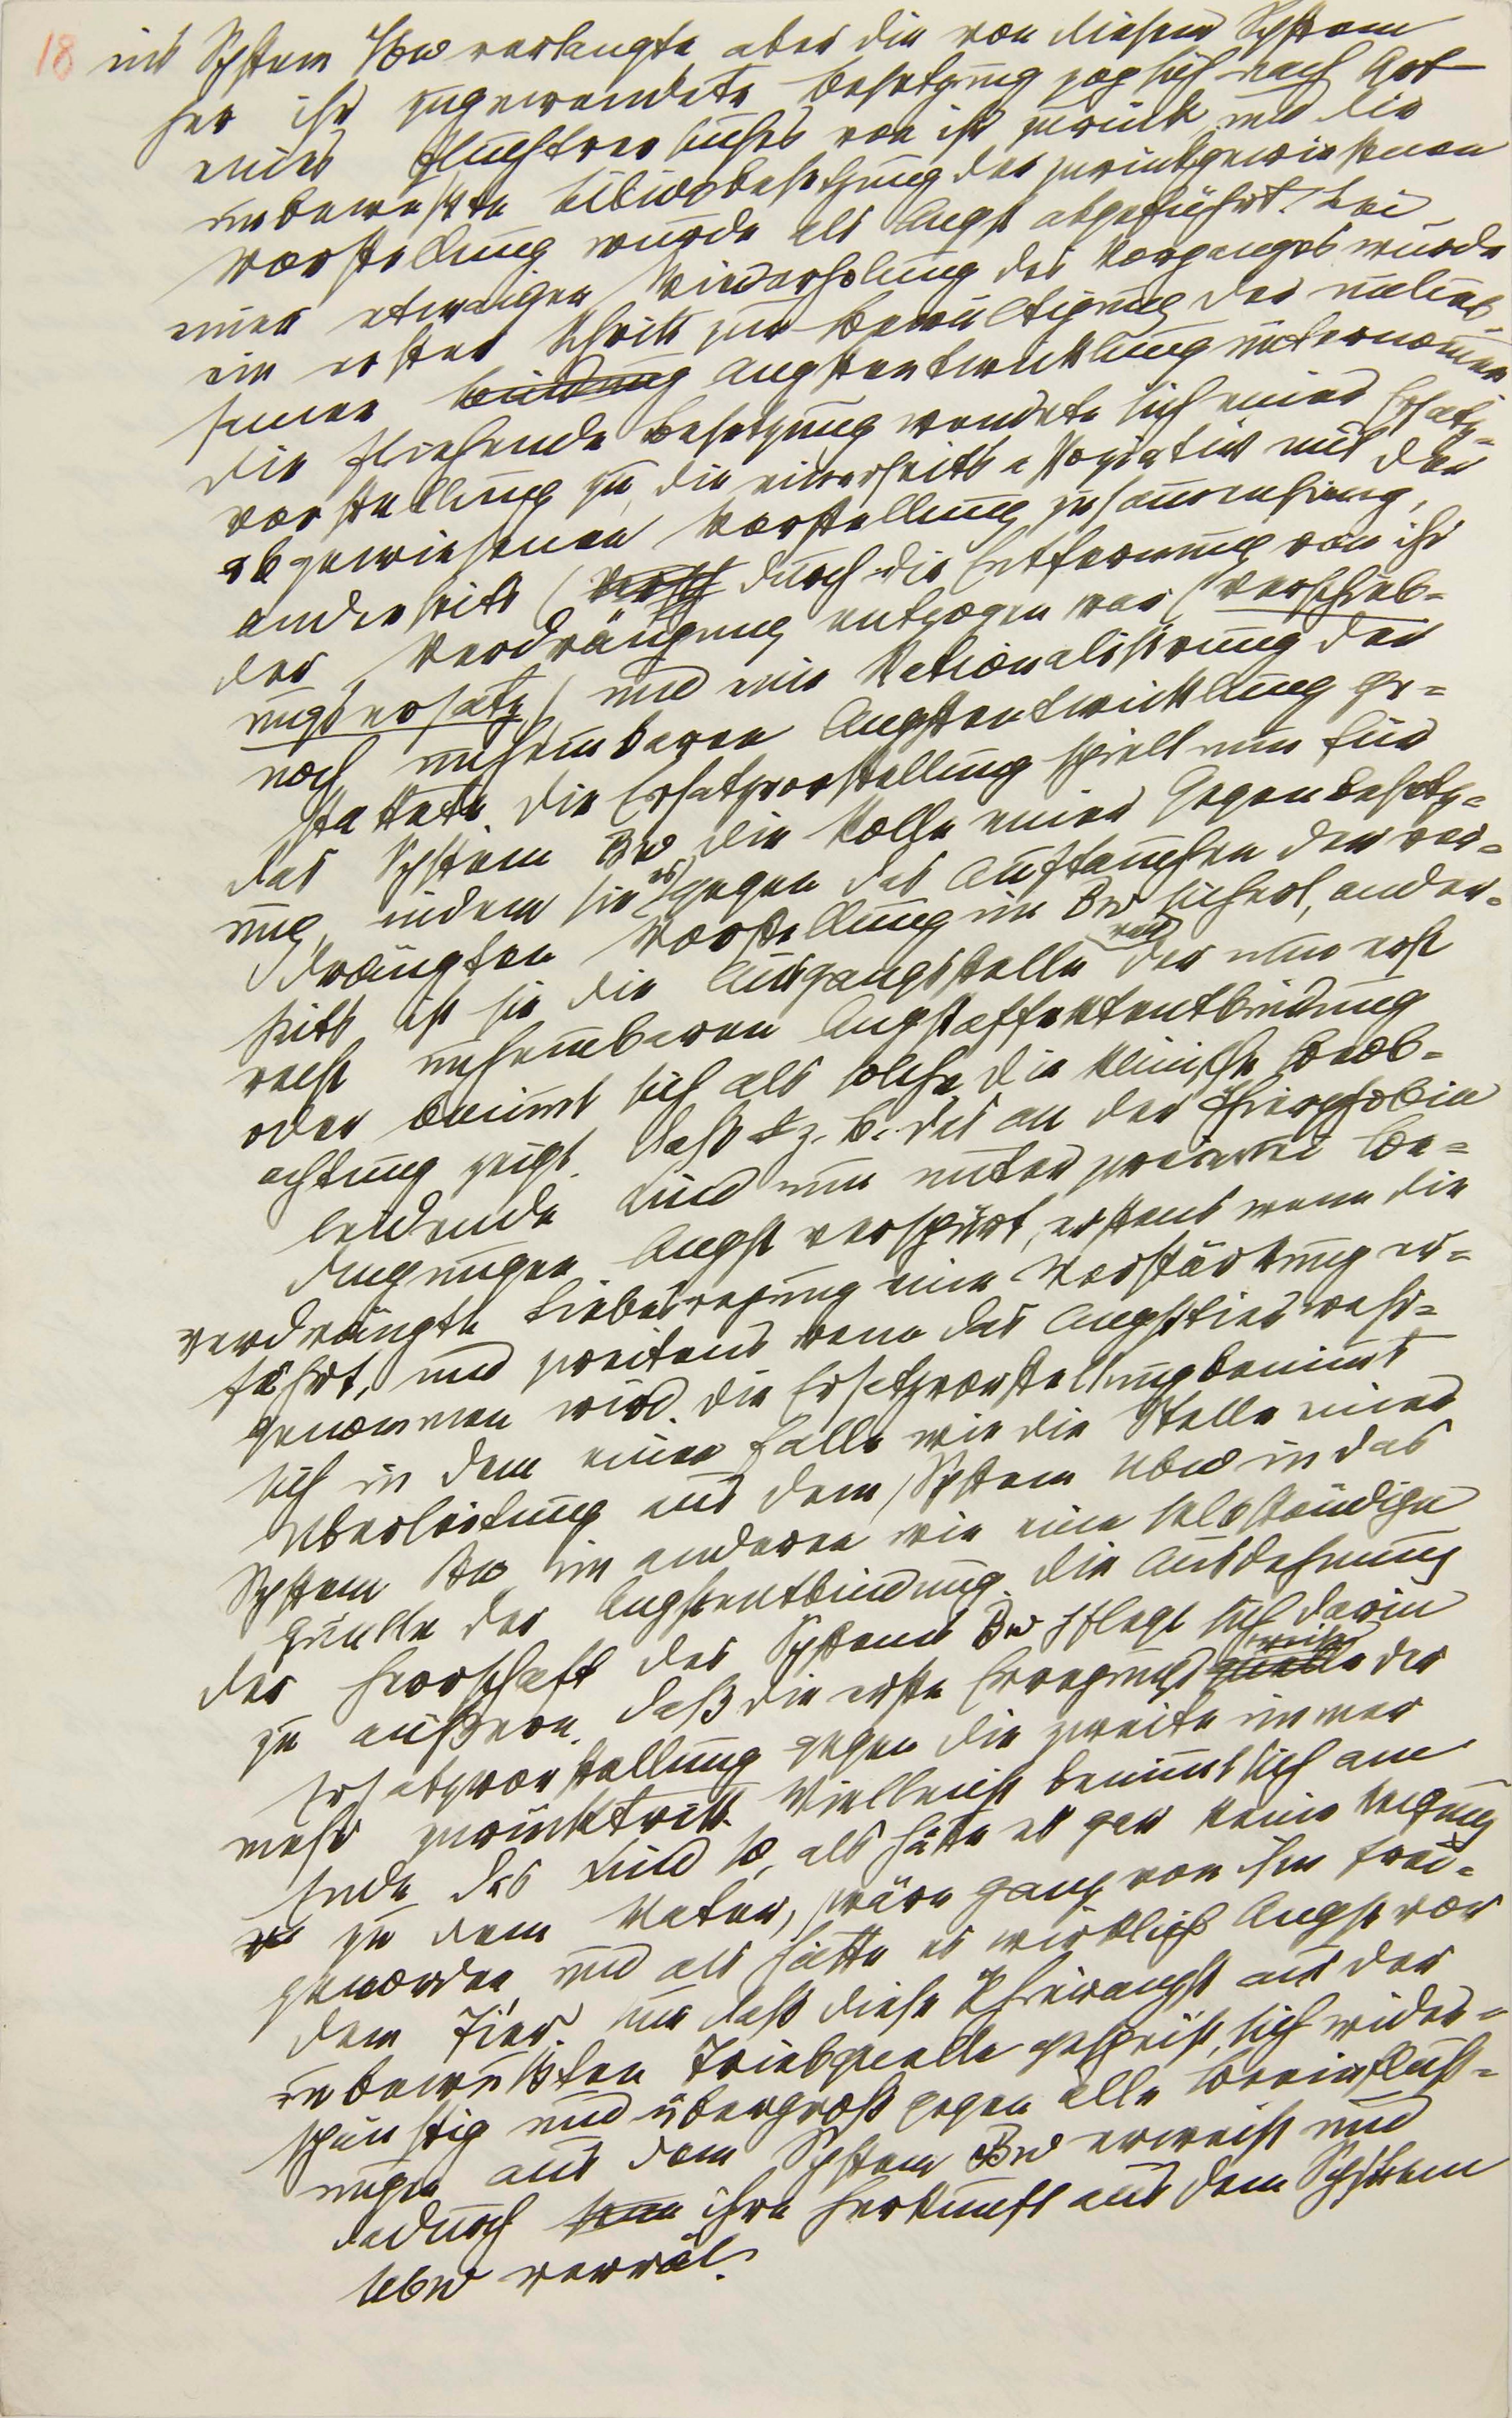 18 ins System Vbw verlangte, aber die von diesem System
her ihr zugewendete Besetzung zog sich nach Art
eines Fluchtversuches von ihr zurück und die
unbewußte Libidobesetzung der zurückgewiesenen
Vorstellung wurde als Angst abgeführt. Bei
einer etwaigen Wiederholung des Vorganges wurde
ein erster Schritt zur Bewältigung der unlieb-
samen Angstentwicklung unternommen
Die fliehende Besetzung wendete sich einer Ersatz-
vorstellung zu, die einerseits assoziativ mit der
abgewiesenen Vorstellung zusammenhing,
anderseits durch die Entfernung von ihr
der Verdrängung entzogen war (Verschieb-
ungsersatz) und eine Rationalisirung der
noch unhembaren Angstentwicklung ge-
stattete. Die Ersatzvorstellung spielt nun für
das System Bw die Rolle einer Gegenbesetz-
ung, indem sie es gegen das Auftauchen der ver-
drängten Vorstellung im Bw sichert, ander-
seits ist sie die Ausgangsstelle der nun erst
recht unhembaren Angstaffektentbindung
oder benimmt sich als solche. Die klinische Beob-
achtung zeigt, daß z. B. das an der Thierphobie
leidende Kind nun unter zweierlei Be-
dingungen Angst verspürt, erstens wenn die
verdrängte Liebesregung eine Verstärkung er-
fährt, und zweitens wenn das Angsttier wahr-
genommen wird. Die Ersatzvorstellung benimmt
sich in dem einen Falle wie die Stelle einer
Überleitung aus dem System Ubw in das
System Bw, im anderen wie eine selbständige
Quelle der Angstentbindung. Die Ausdehnung
der Herrschaft des Systems Bw pflegt sich darin
zu äußern, daß die erste Erregungsweise der
Ersatzvorstellung gegen die zweite immer
mehr zurücktritt. Vielleicht benimmt sich am
Ende das Kind so, als hätte es gar keine Neigung
zu dem Vater, wäre ganz von ihm frei-
geworden, und als hätte es wirklich Angst vor
dem Tier. Nur daß diese Thierangst aus der
unbewußten Triebquelle gespeist, sich wider-
spänstig und übergroß gegen alle Beeinfluß-
ungen aus dem System Bw erweist und
dadurch ihre Herkunft aus dem System
Ubw verrät.